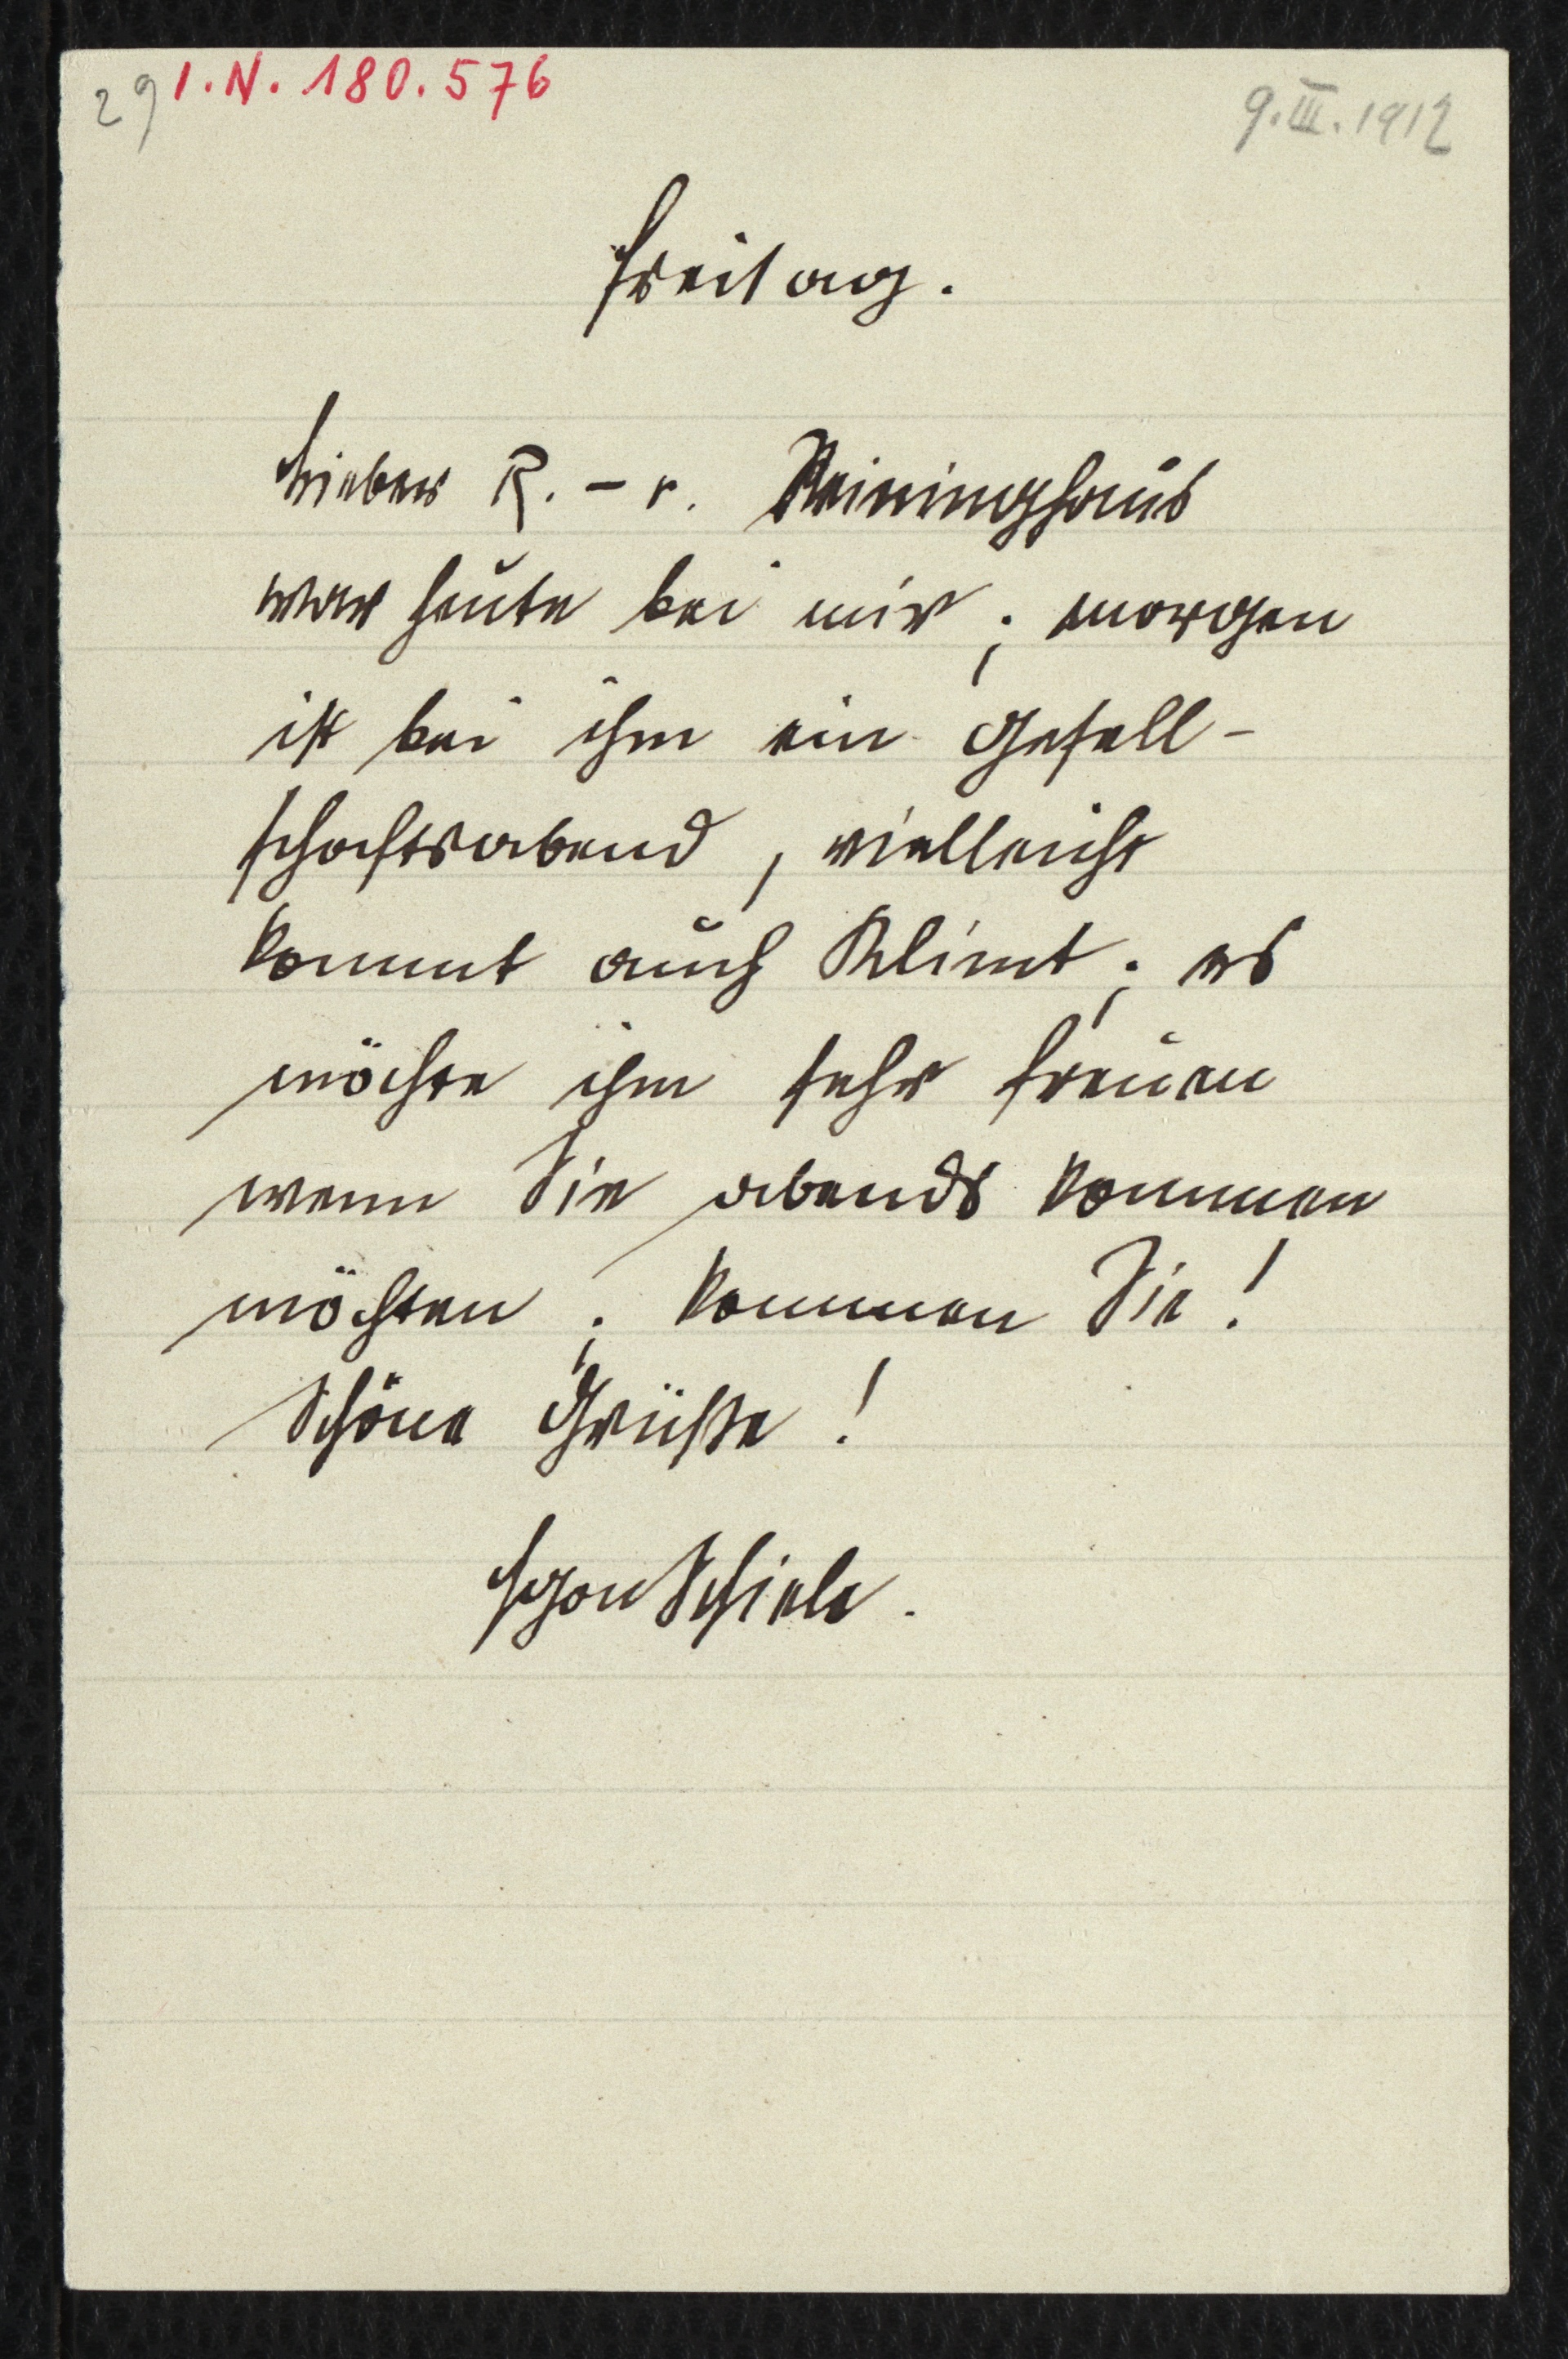 29 I.N. 180.576
9.III.1912
Freitag.
Lieber R. – v. Reininghaus
war heute bei mir; morgen
ist bei ihm ein Gesell-
schaftsabend, vielleicht
kommt auch Klimt; es
möchte ihm sehr freuen
wenn Sie abends kommen
möchten; kommen Sie!
Schöne Grüße!
Egon Schiele.